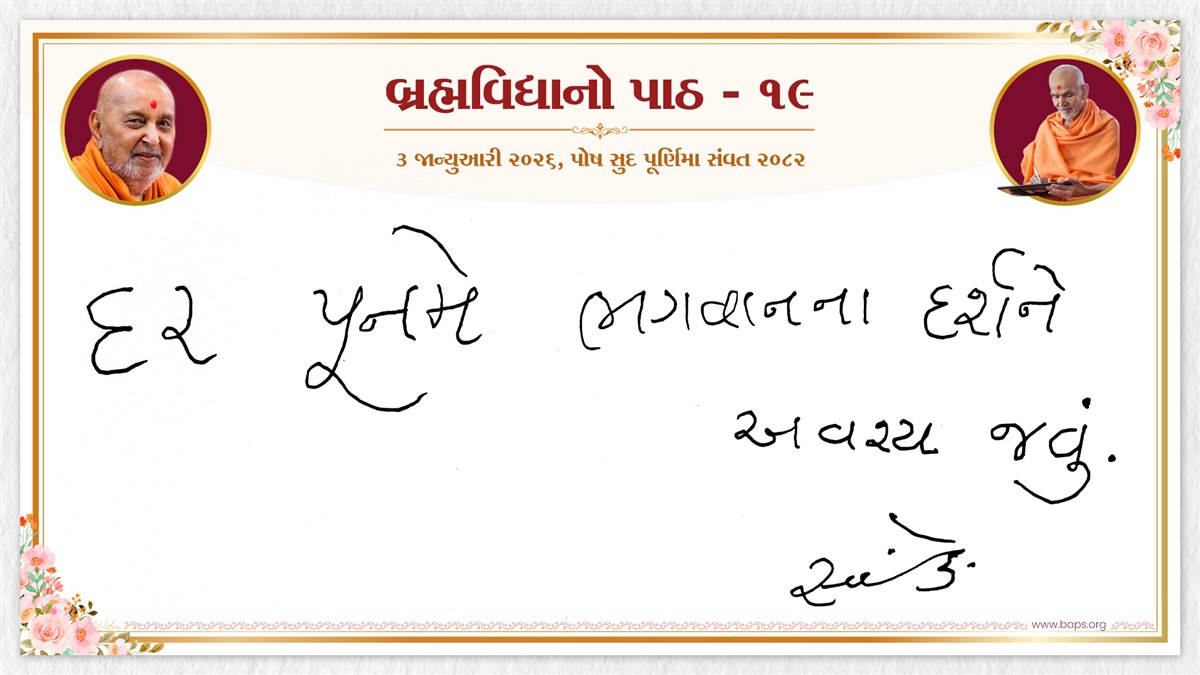 બ્રહ્મવિદ્યાનો પાઠ - ૧૯
૩ જાન્યુઆરી ૨૦૨૬, પોષ સુદ પૂર્ણિમા સંવત ૨૦૮૨
દર પૂનમે ભગવાનના દર્શને
અવશ્ય જવું.
www.baps.org